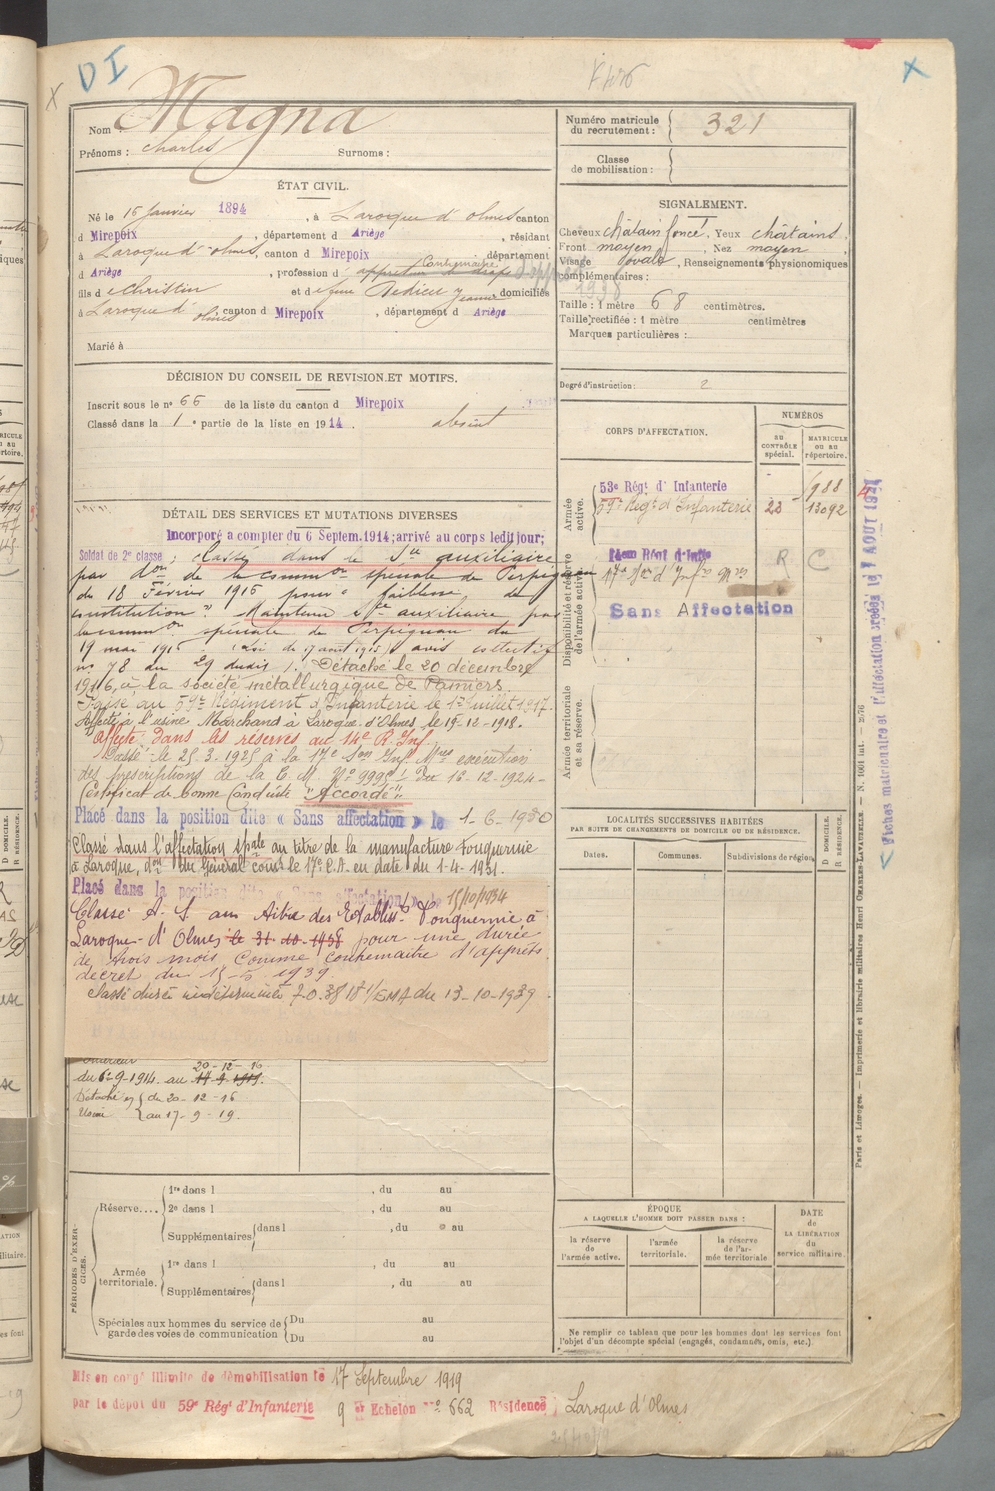 DI
Nom : Magna
Prénoms : Charles Surnoms :
Numéro matricule du recrutement : 321
Classe de mobilisation :
ÉTAT CIVIL.
Né le 16 Janvier 1894, à Laroque d'olmes canton
d Mirepoix, département d Ariège, résidant
à Laroque d'olmes, canton d Mirepoix département
Contremaitre
d Ariège, profession d'
fils d e Christin et d e domiciliés
à Laroque d'olmes canton d Mirepoix, département d Ariège
Marié à
SIGNALEMENT.
Cheveux châtain foncé. Yeux châtains.
Front moyen, Nez moyen
Visage ovale, Renseignements physionomiques
complémentaires :
1938
Taille : 1 mètre 68 centimètres.
Taille rectifiée : 1 mètre centimètres
Marques particulières :
Degré d'instruction : 2
DÉCISION DU CONSEIL DE REVISION ET MOTIFS.
Inscrit sous le n° 66 de la liste du canton d Mirepoix
Classé dans le 1e partie de la liste en 1914. absent
CORPS D'AFFECTATION.
NUMÉROS
au CONTRÔLE spécial.
MATRICULE ou au répertoire.
Armée active.
53e Régt d'Infanterie 988
59e Régt d'Infanterie 13092
Disponibilité et réserve de l'armée active.
R C
Sans Affectation
Armée territoriale et sa réserve.
DÉTAIL DES SERVICES ET MUTATIONS DIVERSES
Incorporé a compter du 6 Septem. 1914; arrivé au corps ledit jour;
Soldat de 2e classe; Classé dans le Sce auxiliaire
par don de la common spéciale de Perpignan
du 18 Février 1915 pour "faiblesse de
constitution". Maintenu Sce auxiliaire par
la common spéciale de Perpignan du
19 mai 1915 (loi du 17 août 1915) avis collectif
no 78 du 29 dudit. Détaché le 20 décembre
1916, à la société métallurgique de Pamiers
Passé au 59e Régiment d'Infanterie le 1er Juillet 1917.
Affecté à l'usine Marchand à Laroque d'Olmes le 19-12-1918.
Affecté dans les réserves au 14e R. Inf.
Passé le 25.3.1925 à la 17e Son Inf. Mres exécution
des prescriptions de la C. M. No 9995 Du 16-12-1924
Certificat de bonne Conduite "Accordé"
Placé dans la position dite « Sans affectation » le 1-6-1930
Classé dans l'affectation spale au titre de la manufacture Fonquernie
à Laroque, don du Général Cdant le 17e C.A. en date du 1-4-1931.
Placé dans la position dite « Sans affectation » le 15/10/1934
Classé A. S. au titre des Etabliss. Fonquernie à
Laroque-d'Olmes le 31-10-1938 pour une durée
de trois mois comme contremaitre d'apprêts
décret du 1939.
Classé durée indéterminée du 13-10-1939
Intérieur
20-12-16
du 6-9-1914 au
Détaché en du 20-12-16
Usine au 17-9-19.
LOCALITÉS SUCCESSIVES HABITÉES
PAR SUITE DE CHANGEMENTS DE DOMICILE OU DE RÉSIDENCE.
Dates. Communes. Subdivisions de région.
D DOMICILE.
R RÉSIDENCE.
PÉRIODES D'EXERCICES.
Réserve....
1re dans l , du au
2e dans l , du au
Supplémentaires dans l , du au
Armée territoriale.
1re dans l , du au
Supplémentaires dans l , du au
Spéciales aux hommes du service de garde des voies de communication
Du au
Du au
ÉPOQUE
A LAQUELLE L'HOMME DOIT PASSER DANS :
la réserve de l'armée active.
l'armée territoriale.
la réserve de l'armée territoriale
DATE de LA LIBÉRATION du service militaire.
Ne remplir ce tableau que pour les hommes dont les services font
l'objet d'un décompte spécial (engagés, condamnés, omis, etc.).
Mis en congé illimité de démobilisation le 17 Septembre 1919
par le dépot du 59e Régt d'Infanterie 9e Echelon No 662 Résidence Laroque d'Olmes
Paris et Limoges. — Imprimerie et librairie militaires Henri CHARLES-LAVAUZELLE. — N. 1001 int.
Fiches matriculaire et d'affectation créées le AOUT